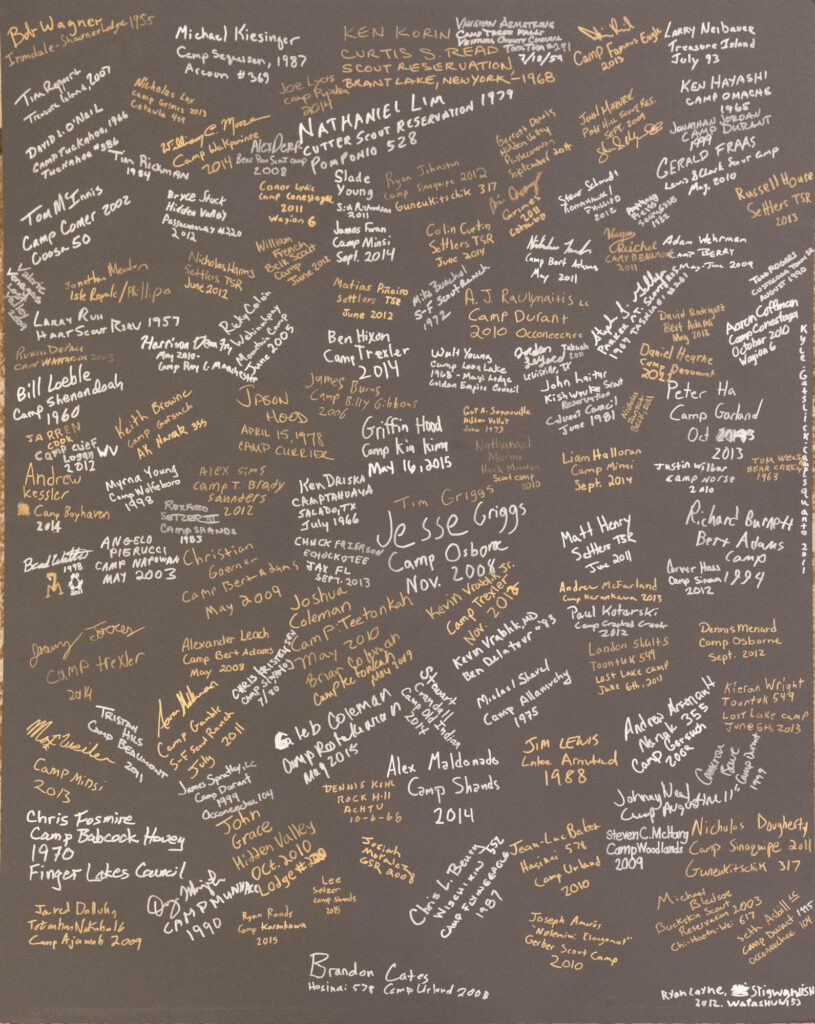 Bob Wagner
Irondale-Shawneelodge 1955
Michael Kiesinger
Camp Sequassen, 1987
Arcoon #369
KEN KORIN
CURTIS S. READ
SCOUT RESERVATION
BRANT LAKE, NEW YORK - 1968
VAUGHAN ARMSTRONG
CAMP THREE FALLS
VENTURA COUNTY COUNCIL
TOPA TOPA #291
7/18/59
Camp Famous Eagle
2013
LARRY Neibauer
Treasure Island
July 93
Tim Rappert
Treasure Island, 2007
Nicholas Lay
Camp Grimes 2013
Catawba 459
Joe Lyons
2014
KEN HAYASHI
CAMP OMACHE
1965
DAVID L. O'NEIL
CAMP TUCKAHOE, 1966
TUCKAHOE #386
William C. Moore
Camp Wakpominee
2014
Alex Derr
Bear Paw Scout camp
2008
NATHANIEL LIM
CUTTER SCOUT RESERVATION 1979
POMPONIO 528
Garrett Davis
Hidden Valley
September 2014
JOHN
Sept. 2009
JONATHAN JORDAN
CAMP DURANT
1999
GERALD FRAAS
Lewis & Clark Scout Camp
May, 2010
Tim Rickman
1984
Tom McInnis
Camp Comer 2002
Coosa 50
Bryce Stack
Hidden Valley
Passaconaway #220
2012
Conor Lydic
Camp Conestoga
2011
Wagion 6
Slade
Young
Sid Richardson
2011
James Fran
Camp Minsi
Sept. 2014
Ryan Johnston
Camp Sinoquipe 2012
Guneukitschik 317
Steve Schmidt
2012
Russell House
Settlers TSR
2013
Colin Curtin
Settlers TSR
June 2014
Camp Bert Adams
May 2011
CAMP BEAUMONT
2011
Adam Wehrman
CAMP BERRY
May-June 2009
TODD RODERS
AUGUST 1990
Jonathan Meador
Isle Royale/Phillippo
Nicholas Harms
Settlers TSR
June 2012
William
French
Belk Scout
Camp
June 2012
Matias Piñeiro
Settlers TSR
June 2012
S-F Scout Ranch
1972
A.J. Raulynaitis LC
Camp Durant
2010 Occoneechee
David Rodriguez
Bert Adams
May 2013
Aaron Coffman
Camp Conestoga
October 2010
Wagion 6
LARRY RUH
HART SCOUT RSRV 1957
Ricky Colón
June 2005
Harrison
May 2010
Camp Roy C. Manchester
Ben Hixon
Camp Trexler
2014
Walt Young
Camp Lona Lake
1968 - Mayi Lodge
Golden Empire Council
Lewisville, TX
John Laitar
Kishwauke Scout
Reservation
Calumet Council
June 1981
Daniel Hearne
Camp Beaumont
Peter Ha
Camp Garland
Oct
2013
2003
Bill Loeble
Camp Shenandoah
1960
James Burns
Camp Billy Gibbons
2006
JASON
HOOD
APRIL 15, 1978
CAMP CURRIER
Keith Browne
Camp Gorsuch
AK Nanuk 355
Griffin Hood
Camp Kia Kima
May 16, 2015
June 1973
JARREN
COOK
CAMP CHIEF
LOGAN
2012
WV
Nathanael
Marino
Scout camp
2010
Liam Halloran
Camp Minsi
Sept. 2014
Justin Wilbur
CAMP NORSE
2010
TOM WELS
BEAR CREEK
1963
KYLE GATSLICK-CAMP SQUANTO 2011
Andrew
Kessler
Camp Boyhaven
2014
Myrna Young
Camp Wolfeboro
1998
ALEX SIMS
CAMP T. BRADY
SAUNDERS
2012
REXFORD
SETZER III
CAMP SHANDS
1983
KEN DRISKA
CAMP TAHUAYA
SALADO, TX
July 1966
Tim Griggs
Jesse Griggs
Camp Osborne
Nov. 2008
Matt Henry
Settlers TSR
Jun 2011
Richard Burnett
Bert Adams
Camp
1994
1998
ANGELO
PIERUCCI
CAMP NAPOWAN
MAY 2003
Christian
Goerner
Camp Bert Adams
May 2009
CHUCK FRZERSON
ECHOCKOTEE
JAX FL
SEPT. 2013
Carver Hass
Camp Simon
2012
Andrew McFarland
Camp Karankawa 2013
Joshua
Coleman
Camp: Teetonkah
May 2010
Kevin Vrablik Sr.
Camp Trexler
Nov. 2012
Paul Kotarski
Camp Crooked Creek
2012
camp trexler
2014
Alexander Leach
Camp Bert Adams
May 2008
CHRIS KRISTENSEN
7/90
Brian Coleman
Camp Teetonkah
May 2009
Kevin Vrablik, MD
Ben Delatour - '93
Landon Shults
Toontuk 549
Lost Lake camp
June 6th, 2011
Dennis Menard
Camp Osborne
Sept. 2012
Stewart
Crandall
Camp Old Indian
2014
Michael Shavel
Camp Allamuchy
1975
Kieran Wright
Toontuk 549
Lost Lake camp
June 6th 2013
TRISTAN
HILS
CAMP BEAUMONT
2011
Camp Gamble
S-F Scout Ranch
July 2011
Caleb Coleman
May 2015
Andrew Arsenault
Nanuk 355
Camp Gorsuch
2002
Camp Minsi
2013
James Spratley, LC
Camp Durant
1999
Occoneechee 104
Alex Maldonado
Camp Shands
2014
JIM LEWIS
Lake Arnstead
1988
Cameron
Camp Durant
1999
DENNIS KOHL
ROCK HILL
ACHTU
10-6-68
Chris Fosmire
Camp Babcock Hovey
1970
Finger Lakes Council
John
Grace
Hidden Valley
Oct. 2010
Lodge #220
Josiah
GSR 2008
Jean-Luc Baker
Hasinai 578
Camp Urland
2010
Steven C. McHarg
Camp Woodlands
2009
Nicholas Dougherty
Camp Sinoquipe 2011
Guneukitschik 317
CAMP MUNHACKE
1990
Lee
Setzer
Camp Shands
2015
Chris L. Brewer
CAMP FLYING EAGLE
1987
Totanhan Nakaha 16
Camp Ajawah 2009
Ryan Rands
Camp Karankawa
2015
Joseph Amorós
Gerber Scout Camp
2010
Michael
Bledsoe
Buckskin Scout
Reservation 2003
Chi-Hoota-Wei 617
Seth Asbill LC
Camp Durant 1995
Occoneechee 104
Brandon Cates
Hasinai 578 Camp Urland 2008
Ryan Layne, Stigwandish
2012